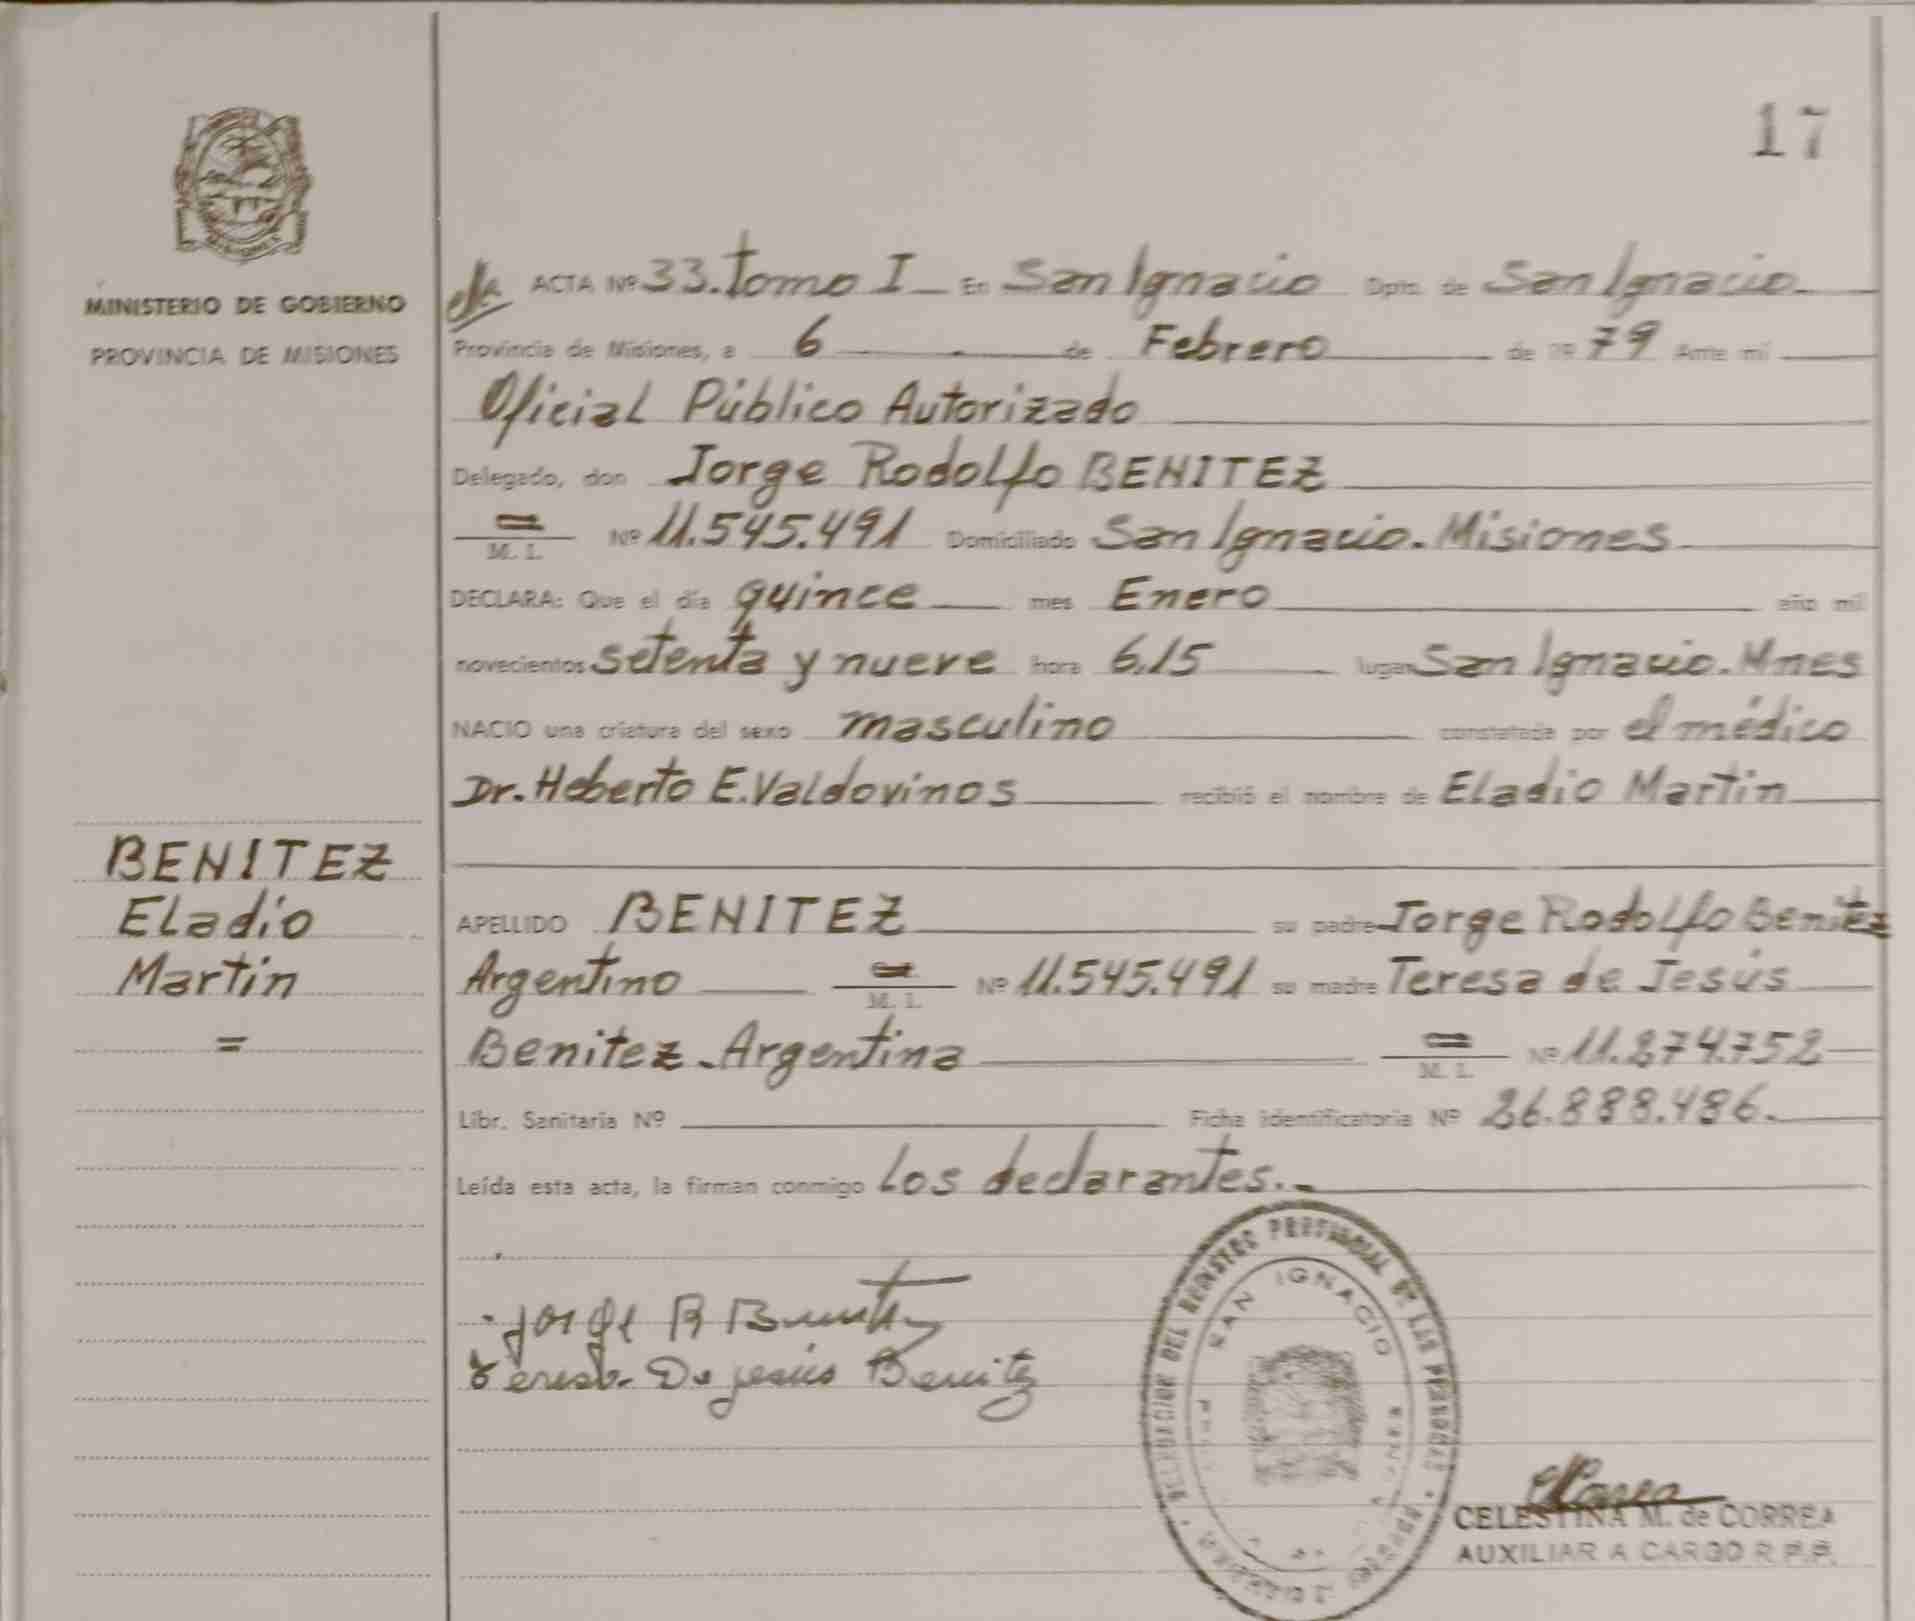 17
MISIONES
MINISTERIO DE GOBIERNO
PROVINCIA DE MISIONES
BENITEZ
Eladio
Martin
=
ACTA Nº 33. Tomo I - En San Ignacio Dpto. de San Ignacio
Provincia de Misiones, a 6 de Febrero de 19 79 Ante mí
Oficial Público Autorizado
Delegado, don Jorge Rodolfo BENITEZ
M. I. Nº 11.545.491 Domiciliado San Ignacio. Misiones
DECLARA: Que el día quince mes Enero año mil
novecientos setenta y nueve hora 6,15 lugar San Ignacio. Mnes
NACIO una criatura del sexo masculino constatada por el médico
Dr. Heberto E. Valdovinos recibió el nombre de Eladio Martin
APELLIDO BENITEZ su padre Jorge Rodolfo Benitez
Argentino M. I. Nº 11.545.491 su madre Teresa de Jesús
Benitez - Argentina M. I. Nº 11.274.752
Libr. Sanitaria Nº Ficha Identificatoria Nº 26.888.486.
Leída esta acta, la firman conmigo los declarantes.-
Jorge R Benitez
Teresa De jesús Benitez
DEL REGISTRO PROVINCIAL DE LAS PERSONAS
SAN IGNACIO
CELESTINA M. de CORREA
AUXILIAR A CARGO R.P.P.